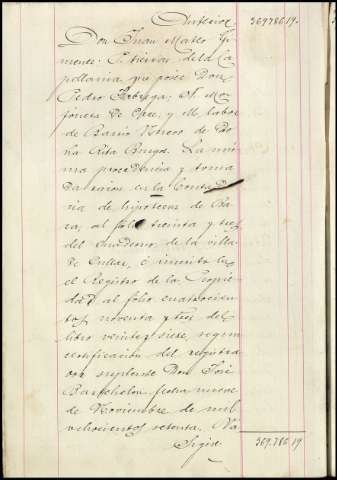 Anterior 369786 19
Don Juan Mateo Gi
menez. P. tierras de la Ca
pellania que posee Don
Pedro
de y M. labor
de Barrio Nuevo de Do
ña Rita Burgos. La mis
ma procedencia y toma
da razon en la Contadu
ria de hipotecas de Ba
za, al folio treinta y tres
del cuaderno de la villa
de Cullar, é inscrito en
el Registro de la Propie
dad al folio cuatrocien
tos noventa y tres del
libro veinte y siete, segun
certificacion del registra
dor suplente Don José
Barthelon fecha nueve
de Noviembre de mil
ochocientos setenta. Va
Sigue 369.786 19